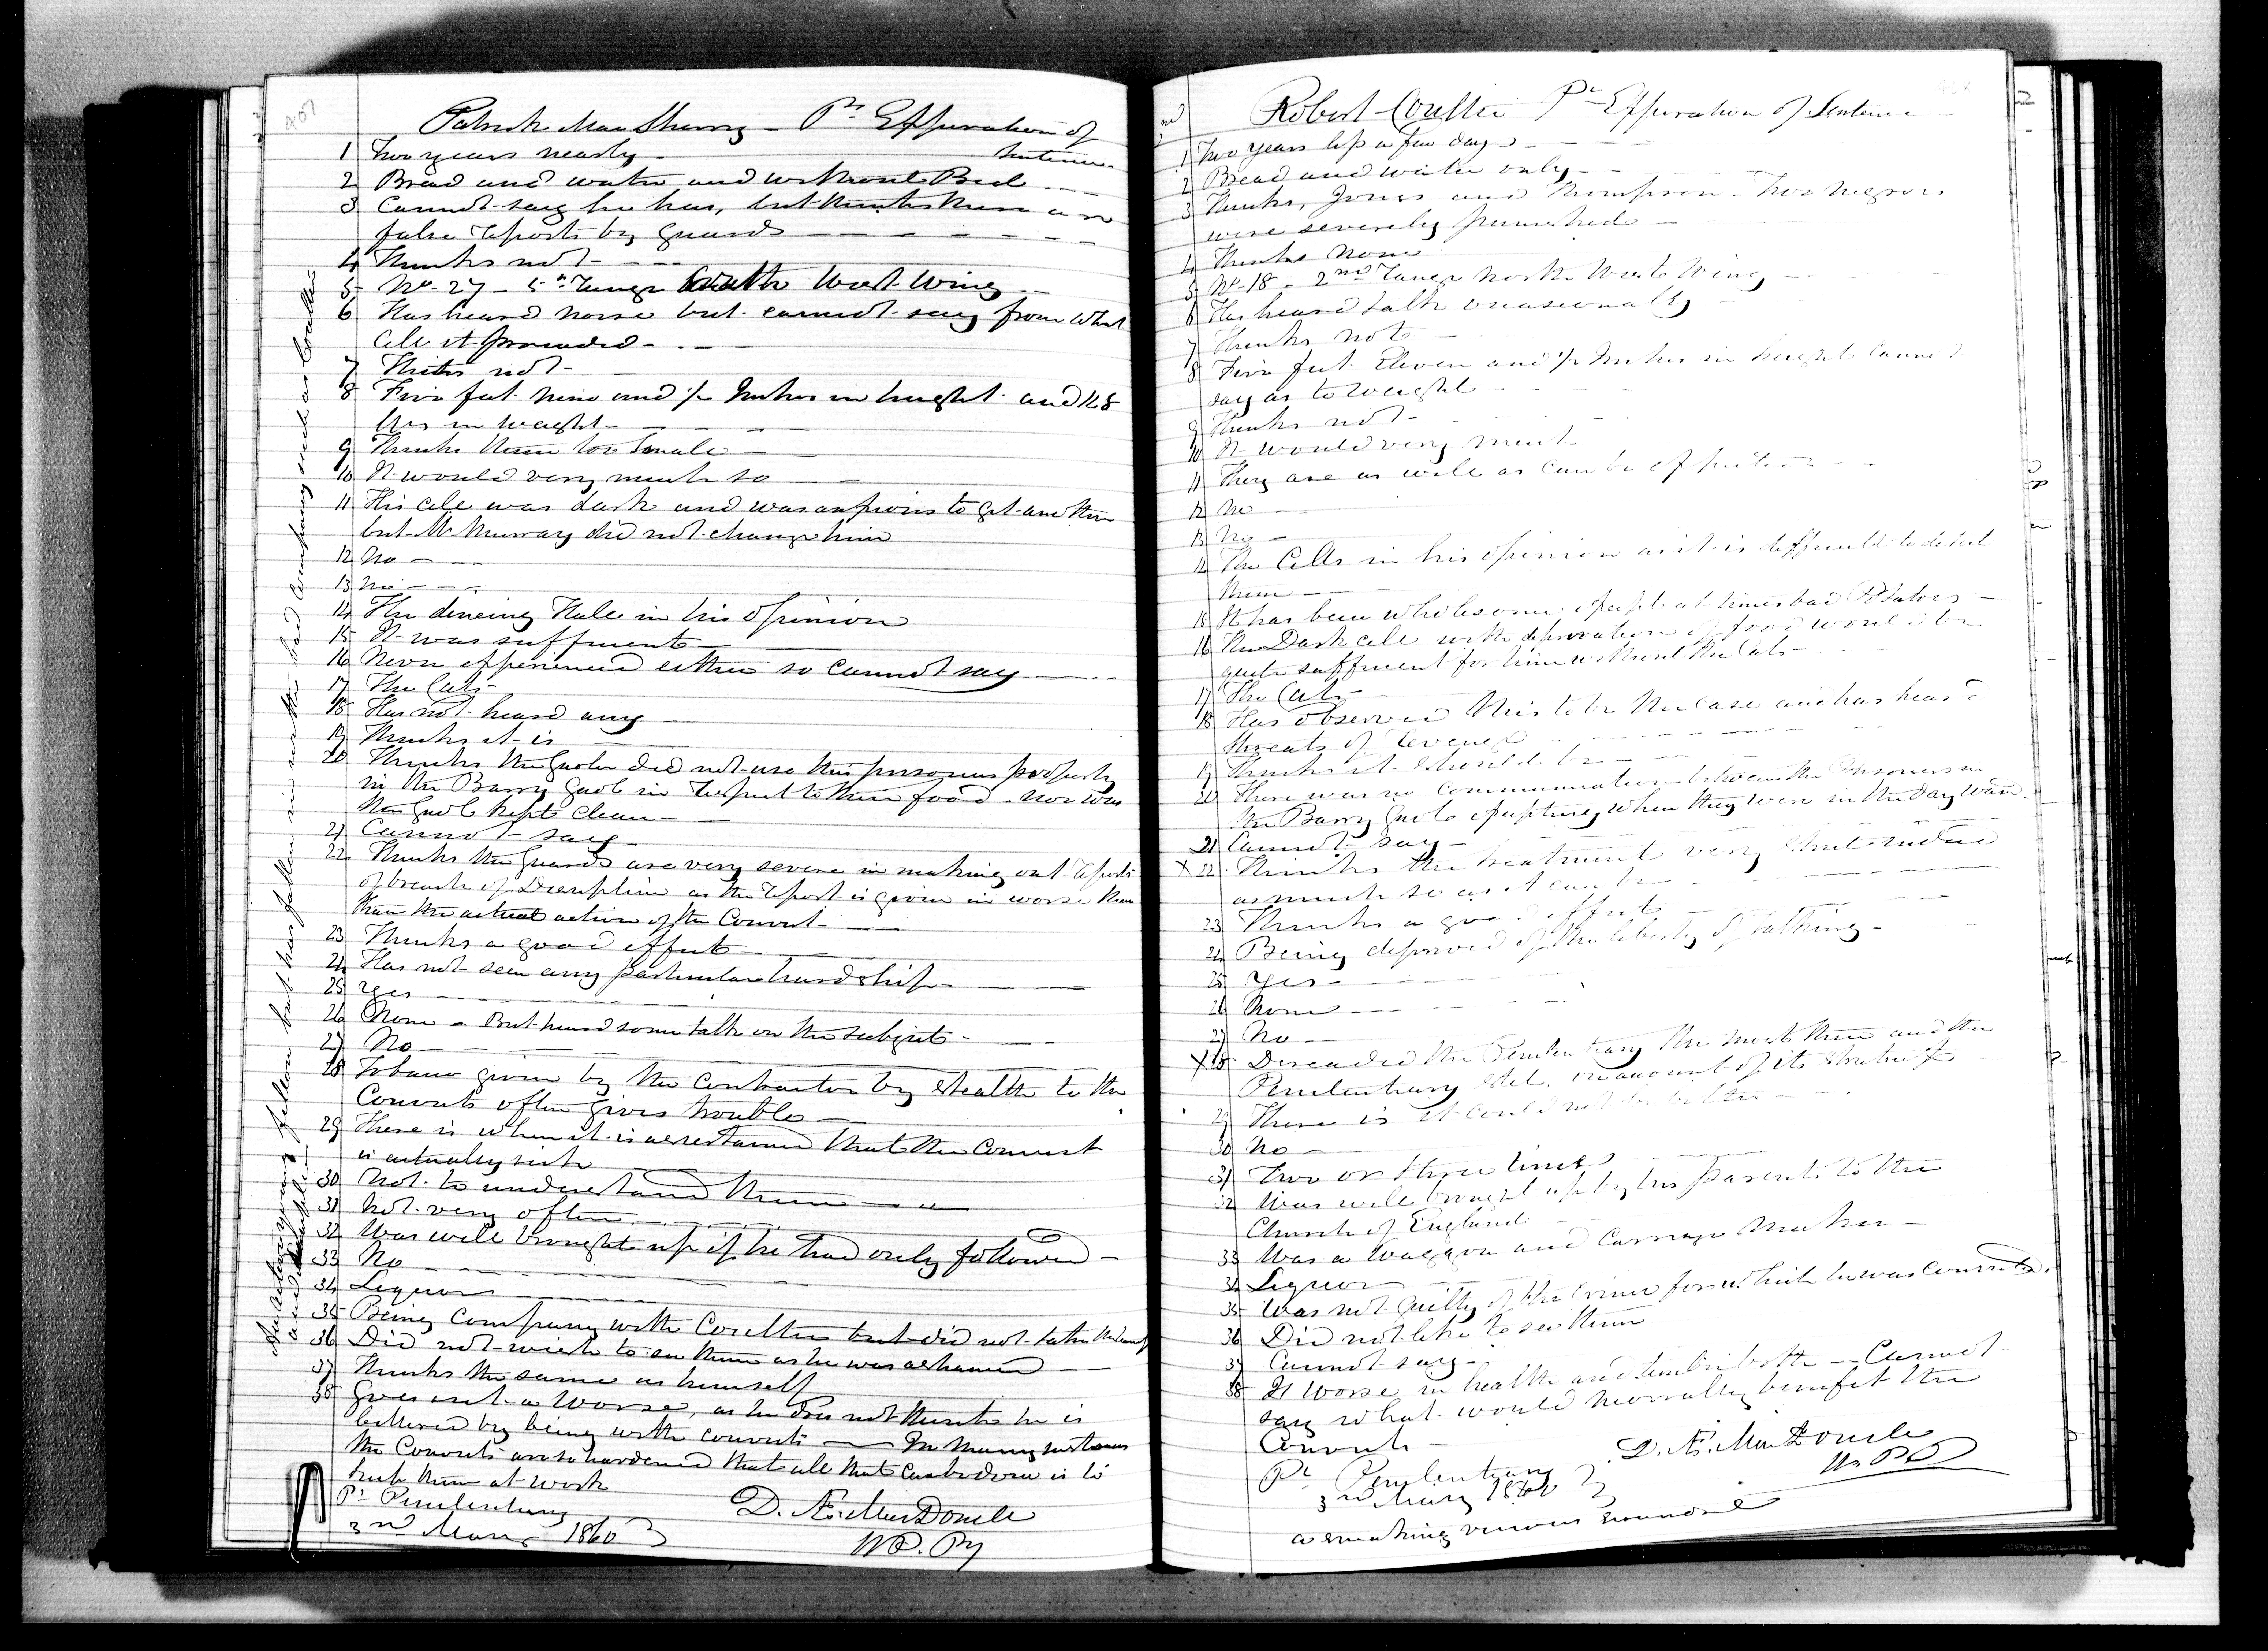 407
Patrick MacSherry – Pr. Expiration of
Sentence
1 Two years nearly –
2 Bread and water and without Bed
3 Cannot say he has, but thinks there are
false reports by guards
4 Thinks not
5 No. 27 – 5th Range South West Wing
6 Has heard noise but cannot say from what
Cell it proceeded
7 Thinks not
8 Five feet nine and ½ Inches in height and 168
lbs in weight
9 Thinks them too Small
10 It would very much so
11 His cell was dark and was anxious to get another
but Mr Murray did not change him
12 No
13 No
14 The dineing Hall in his opinion
15 It was sufficient
16 Never experienced either so cannot say
17 The Cats
18 Has not heard any
19 Thinks it is
20 Thinks the Gaoler did not use the prisoners properly
in the Barry Gaol in respect to their food – nor was
the Gaol kept clean
21 Cannot say
22 Thinks the Guards are very severe in making out reports
of breach of Discipline as the report is given in worse
than the actual action of the Convict
23 Thinks a good effect
24 Has not seen any particular hardship
25 Yes
26 None – But heard some talk on the subject
27 No
28 Tobacco given by the Contractor by stealth to the
Convicts often gives trouble
29 There is when it is ascertained that the Convict
is actually sick
30 Not to understand them
31 Not very often
32 Was well brought up if he had only followed –
33 No
34 Liquor
35 Being Company with Coulter but did not take the
36 Did not wish to see them as he was ashamed
37 Thinks the same as himself
38 Goes out a worse, as he does not think he is
bettered by being with convicts – In Many instances
the Convicts are so hardened that all that can be done is to
keep them at work
Pl. Penitentiary
3rd May 1860
D. Æ. MacDonell
W. Py
young fellow but has fallen in as the bad company such as Coulter
Robert Coulter Pr Expiration of Sentence
1 Two years less a few days
2 Bread and water only
3 Thinks, Jones and Thompson – Two Negroes
were severely punished
4 Thinks None
5 No. 18 – 2nd Range North West Wing
6 Has heard talk occasionally
7 Thinks not
8 Five feet Eleven and ½ Inches in height Cannot
say as to weight
9 Thinks not
10 It would very much
11 They are as well as can be expected
12 No
13 No
14 The Cells in his opinion as it is difficult to detect
them
15 It has been wholesome except at times bad Potatoes
16 The Dark cell with deprivation of food would be
quite sufficient for him without the Cats
17 The Cats
18 Has observed this to be the case and has heard
threats of revenge
19 Thinks it should be
20 There was no communication between the Prisoners in
the Barry Gaol excepting when they were in the Day ward
21 Cannot say
X 22 Thinks the treatment very strict indeed
as much so as it can be
23 Thinks a good effect
24 Being deprived of the liberty of talking
25 Yes
26 None
27 No
X 28 Dreaded the Penitentiary the most then and the
Penitentiary still, on account of its strictness
29 There is it could not be better
30 No
31 Two or three times
32 Was well brought up by his parents to the
Church of England
33 Was a Waggon and Carriage Maker
34 Liquor
35 Was not guilty of the crime for which he was convicted.
36 Did not like to see them
37 Cannot say
38 Is worse in health and both – Cannot
say what would morally benefit the
Convicts
Pl Penitentiary
3rd May 1860
D. Æ. MacDonell
W. P P